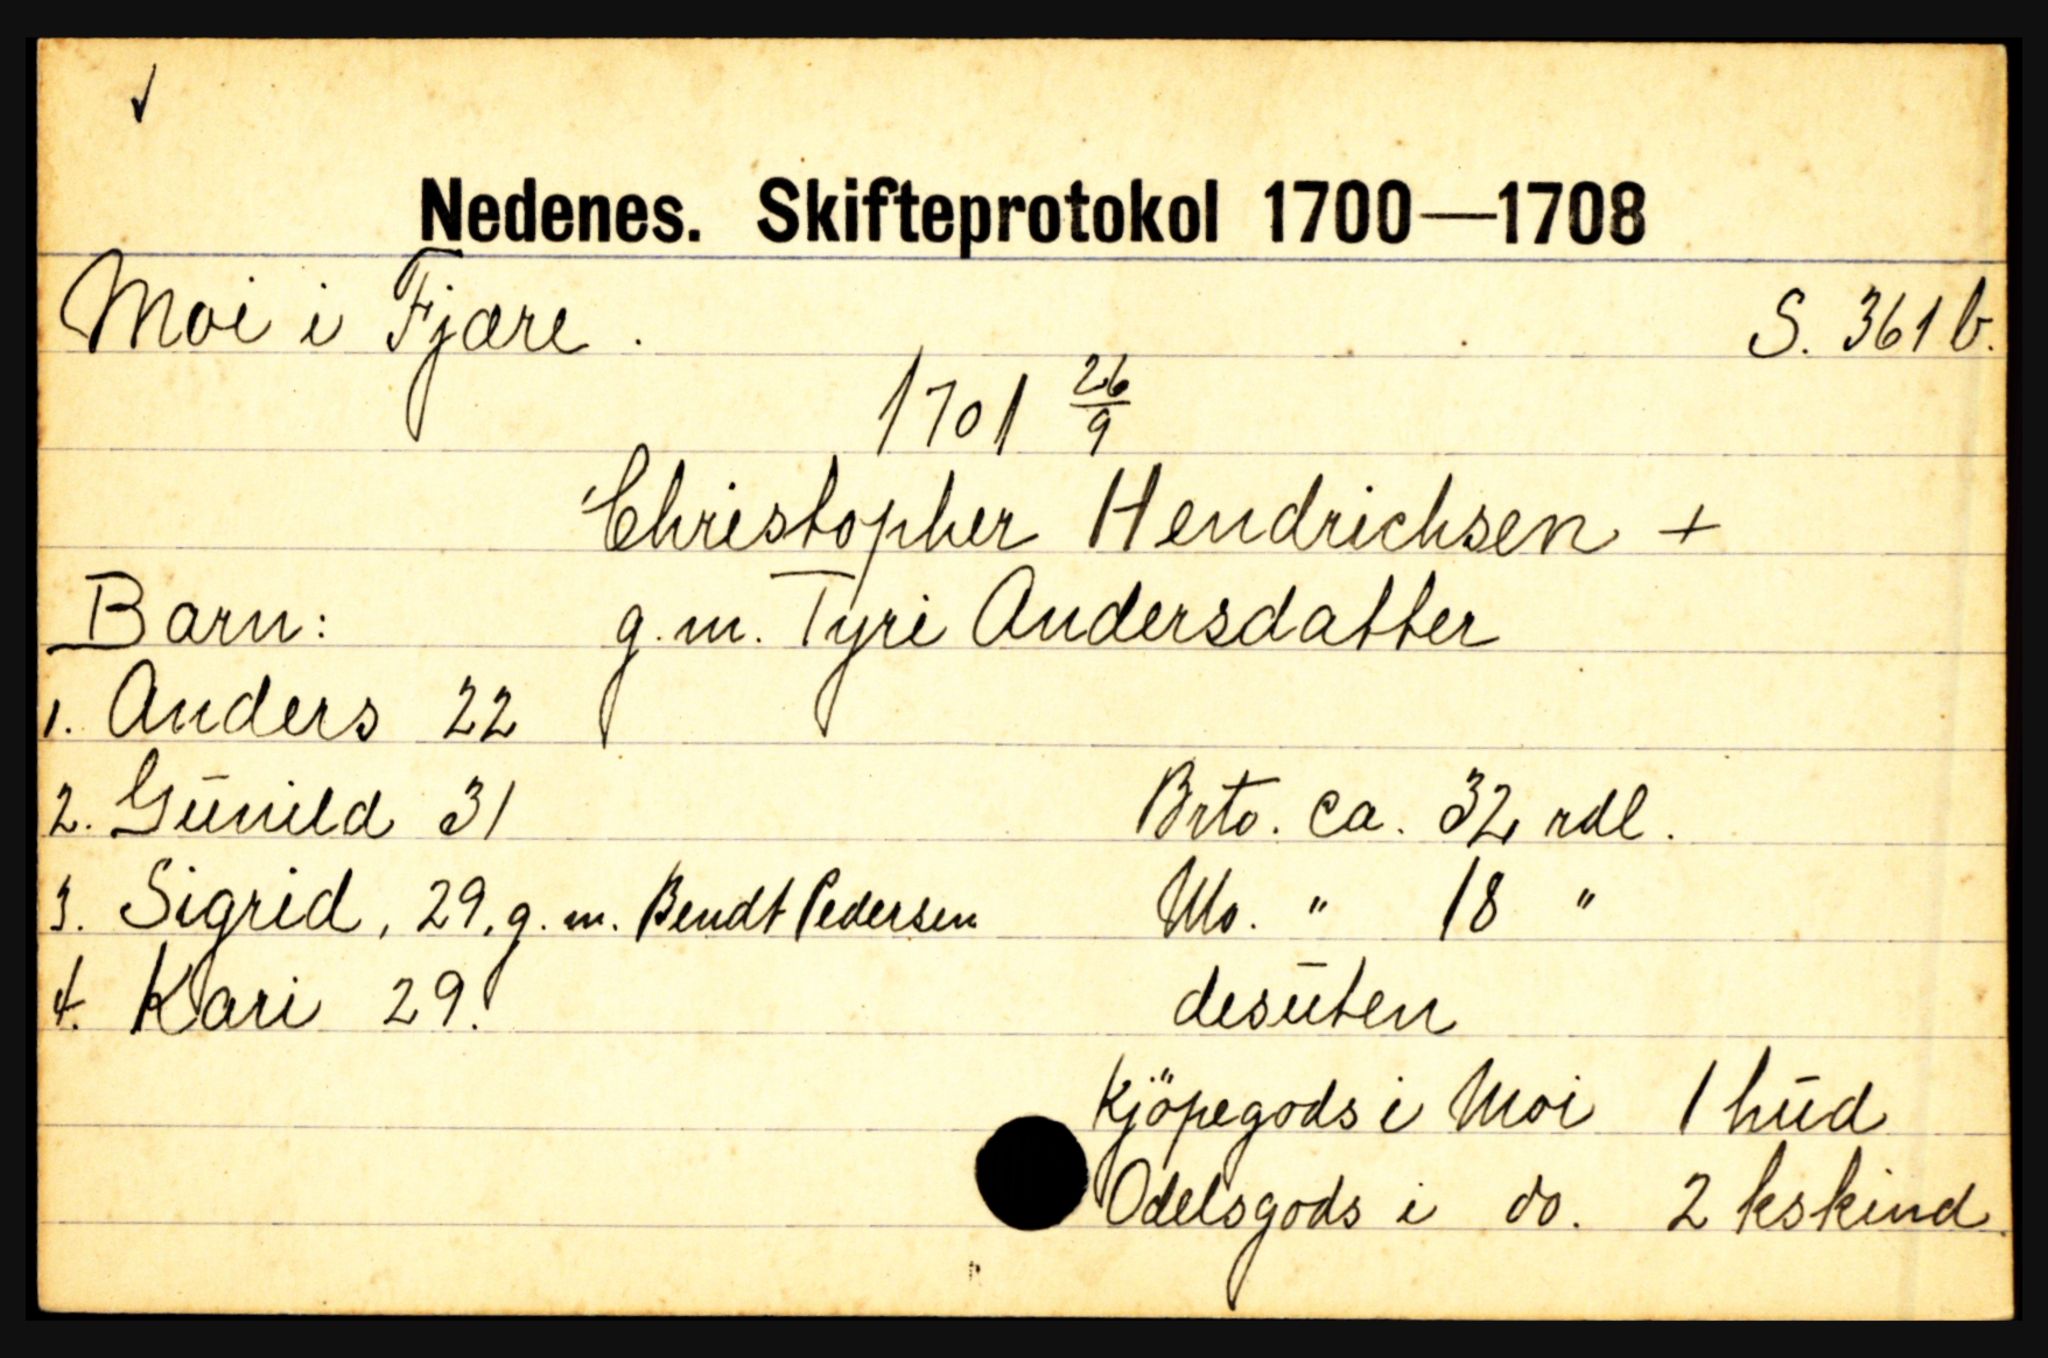 Nedenes. Skifteprotokol 1700—1708
Moi i Fjære. S. 361 b.
1701 26/9
Christopher Hendrichsen +
Barn: g.m. Tyri Andersdatter
1. Anders 22
2. Gūnild 31 Brto. ca. 32 rdl.
3. Sigrid, 29, g.m. Bendt Pedersen Nto. " 18 "
4. Kari 29. desūten
Kjöpegods i Moi 1 hūd
Odelsgods i do. 2 kskind.